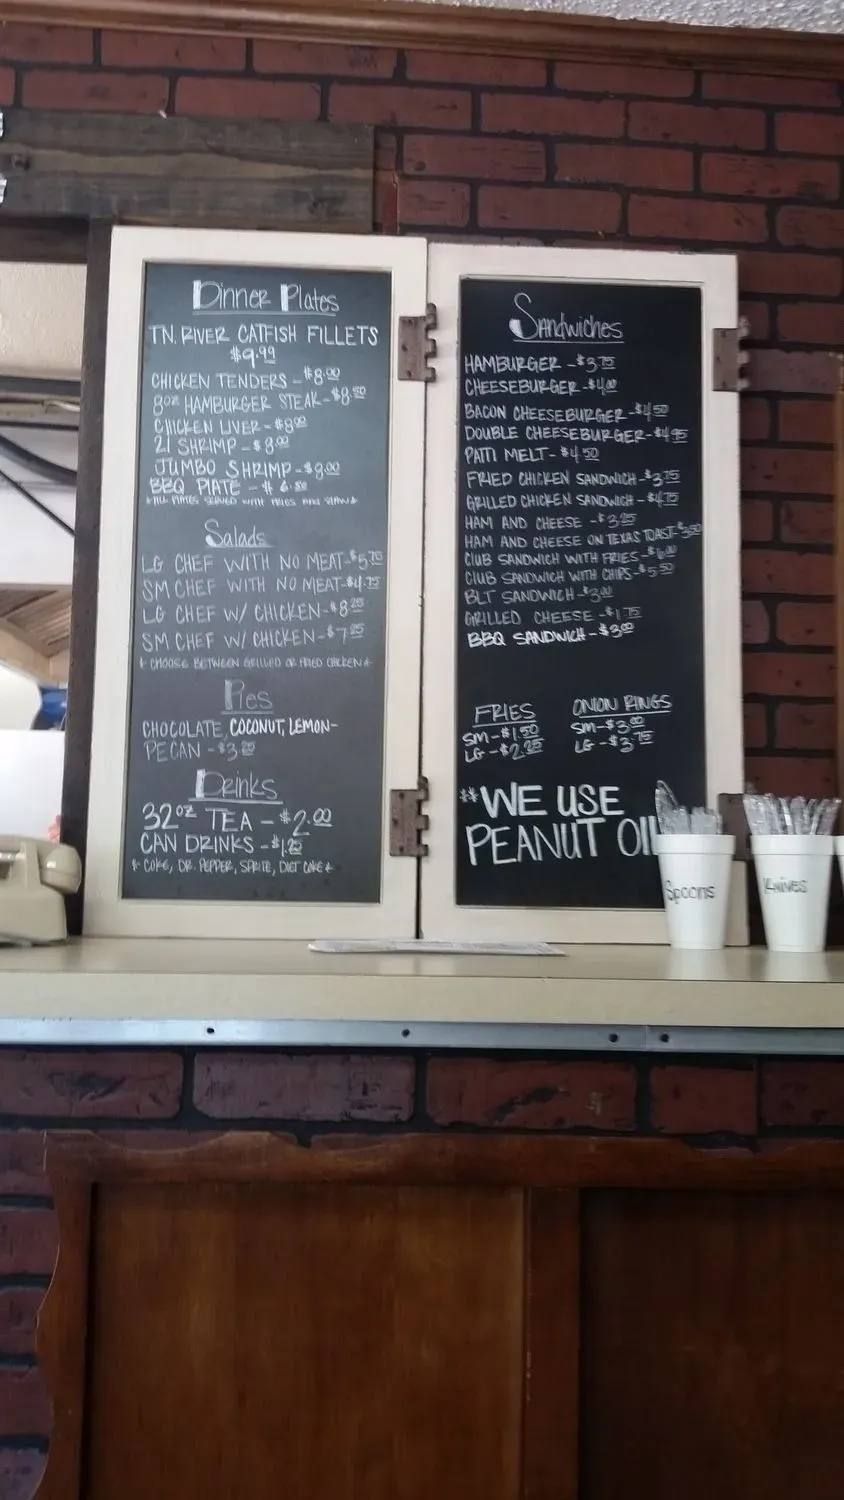 Dinner Plates
TN. RIVER CATFISH FILLETS
$9.99
CHICKEN TENDERS - $8.00
8oz HAMBURGER STEAK - $8.50
CHICKEN LIVER - $8.00
21 SHRIMP - $8.00
JUMBO SHRIMP - $8.00
BBQ PLATE - $6.50
*ALL PLATES SERVED WITH FRIES AND SLAW*
Salads
LG CHEF WITH NO MEAT - $5.75
SM CHEF WITH NO MEAT - $4.75
LG CHEF W/ CHICKEN - $8.25
SM CHEF W/ CHICKEN - $7.25
* CHOOSE BETWEEN GRILLED OR FRIED CHICKEN *
Pies
CHOCOLATE, COCONUT, LEMON-
PECAN -
Drinks
32oz TEA - $2.00
CAN DRINKS - $1.25
* COKE, DR. PEPPER, SPRITE, DIET COKE *
Sandwiches
HAMBURGER - $3.75
CHEESEBURGER - $4.00
BACON CHEESEBURGER - $4.50
DOUBLE CHEESEBURGER - $4.95
PATI MELT - $4.50
FRIED CHICKEN SANDWICH - $3.75
GRILLED CHICKEN SANDWICH - $4.75
HAM AND CHEESE - $3.25
HAM AND CHEESE ON TEXAS TOAST - $3.50
CLUB SANDWICH WITH FRIES - $6.00
CLUB SANDWICH WITH CHIPS - $5.50
BLT SANDWICH - $3.00
GRILLED CHEESE - $1.75
BBQ SANDWICH - $3.00
FRIES
SM - $1.50
LG - $2.25
ONION RINGS
SM - $3.00
LG - $3.75
**WE USE
PEANUT OIL
Spoons
Knives